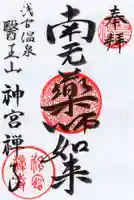 奉拝
南无薬师如来
浅古温泉
醫王山 神宮禅寺